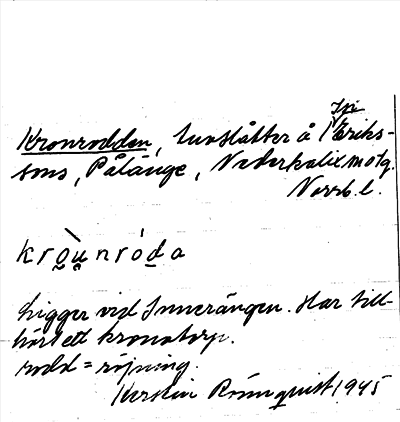 Kronrodden, luvslåtter å P Eriks-
sons, Pålänge, Nederkalix motg.
Norrb. l.
kròu̯nróda
Ligger vid Innerängen. Har till-
hört ett kronotorp.
rodd = röjning.
Kerstin Rönnquist 1945